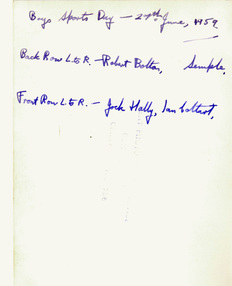 Boys Sports Day — 27th June, 1959.
Back Row L & R. — Robert Bolton, Semple,
Front Row L & R. — Jock Hally, Ian Coltart,